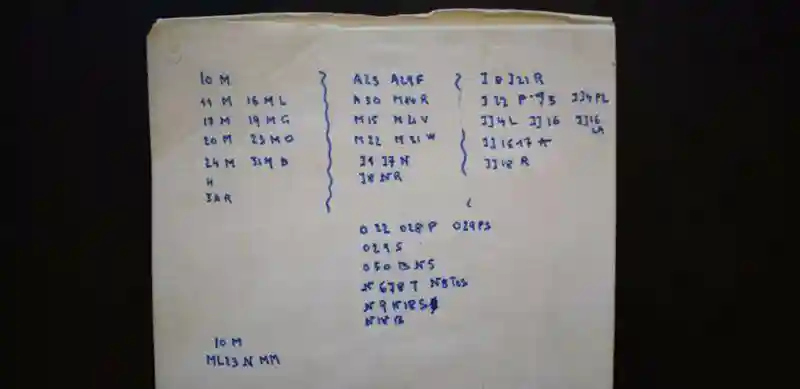 10 M
11 M 16 M L
17 M 19 M G
20 M 23 M O
24 M 31 M B
H
3 A R
A23 A29F
A30 M10R
M15 M21V
M22 M31W
J1 J7N
J8NR
J8 J21R
J22 P
JJ4PL
JJ4L JJ16 JJ16
LA
JJ1617 A
JJ18 R
O22 O28P O29PS
O29S
O50BNS
N678T N8TOS
N9N18S
N18B
10 M
ML23NMM